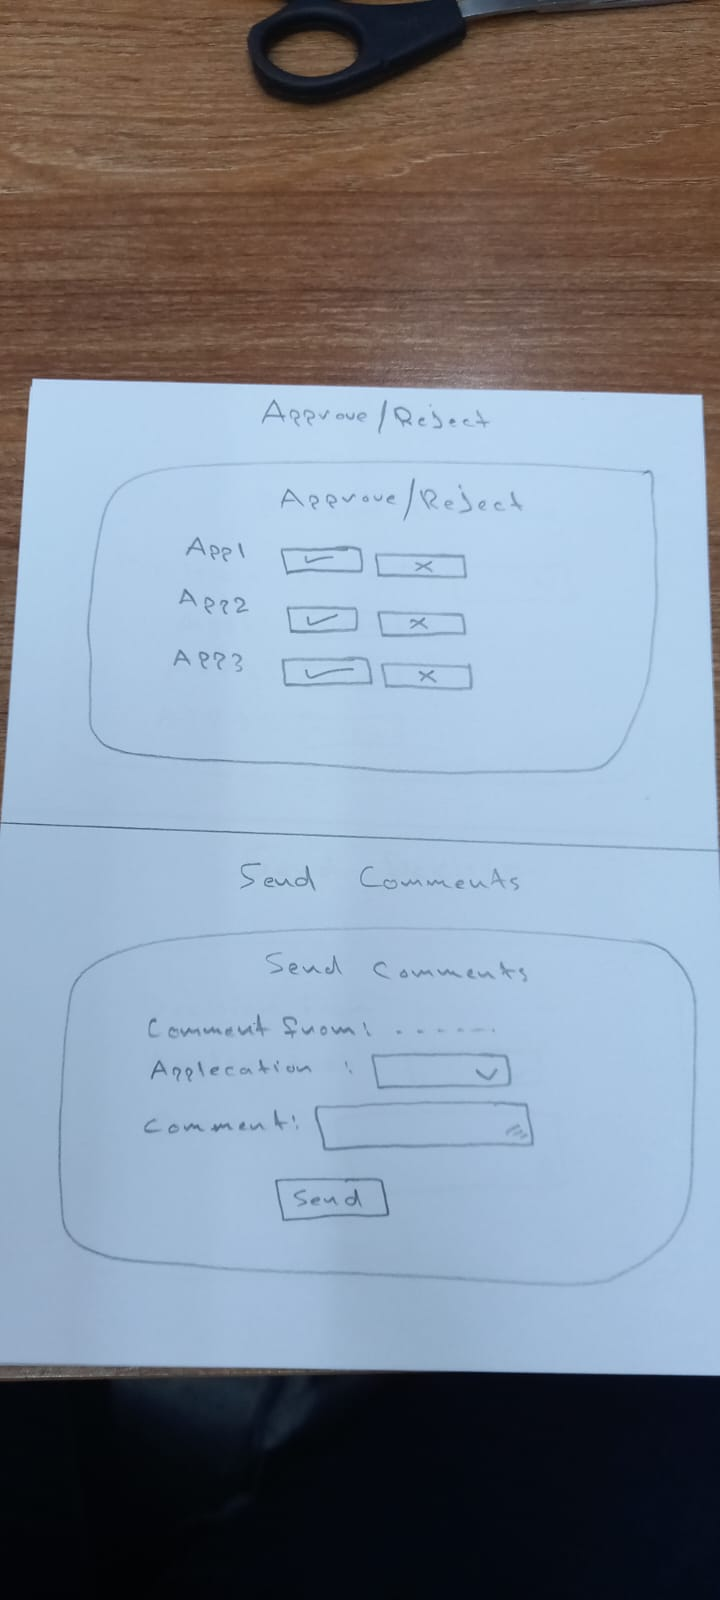 Approve/Reject
Approve/Reject
App1 ✓ ×
App2 ✓ ×
App3 ✓ ×
Send Comments
Send Comments
Comment from: . . . . . .
Applecation :
Comment:
Send